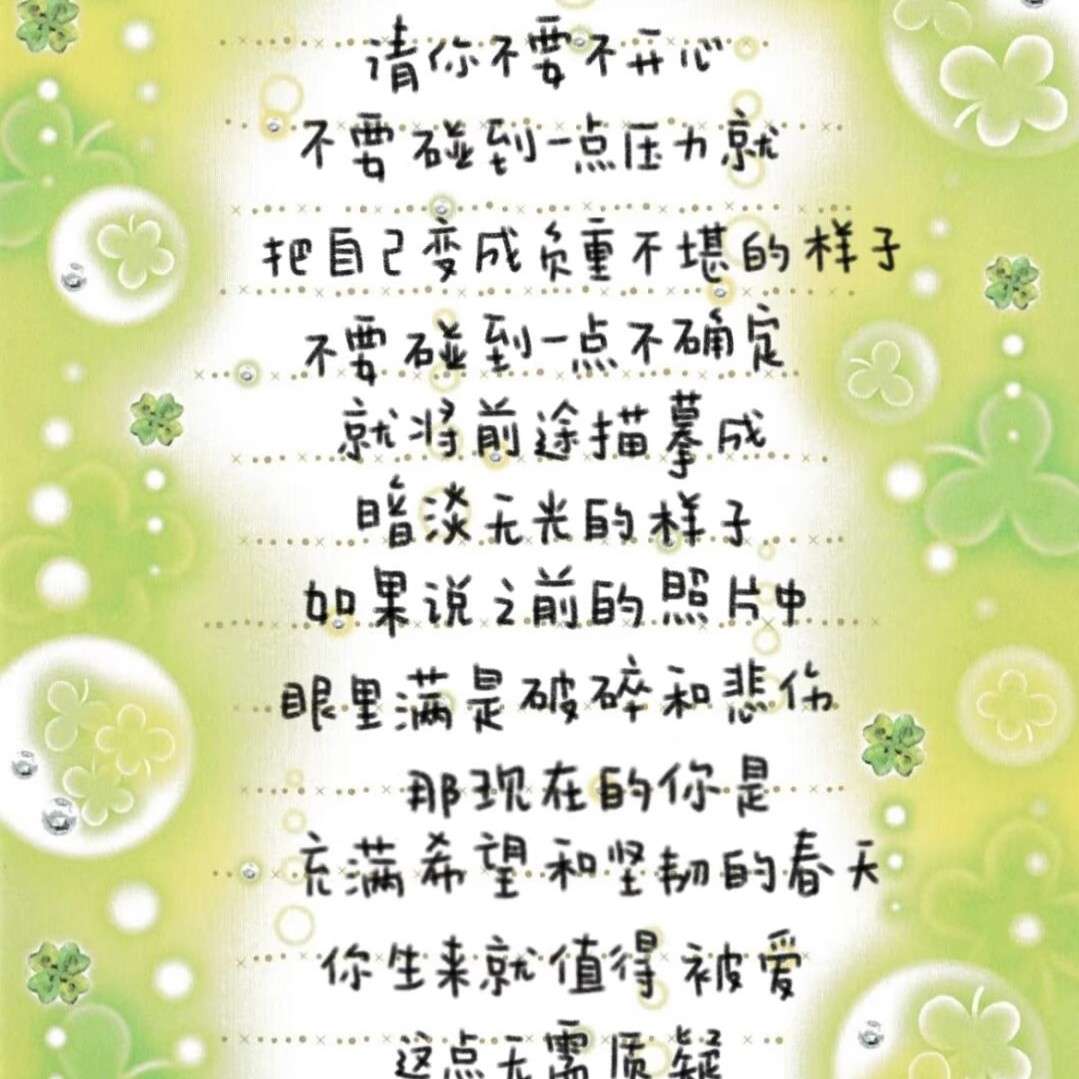 请你不要不开心
不要碰到一点压力就
把自己变成负重不堪的样子
不要碰到一点不确定
就将前途描摹成
暗淡无光的样子
如果说之前的照片中
眼里满是破碎和悲伤
那现在的你是
充满希望和坚韧的春天
你生来就值得被爱
这点无需质疑